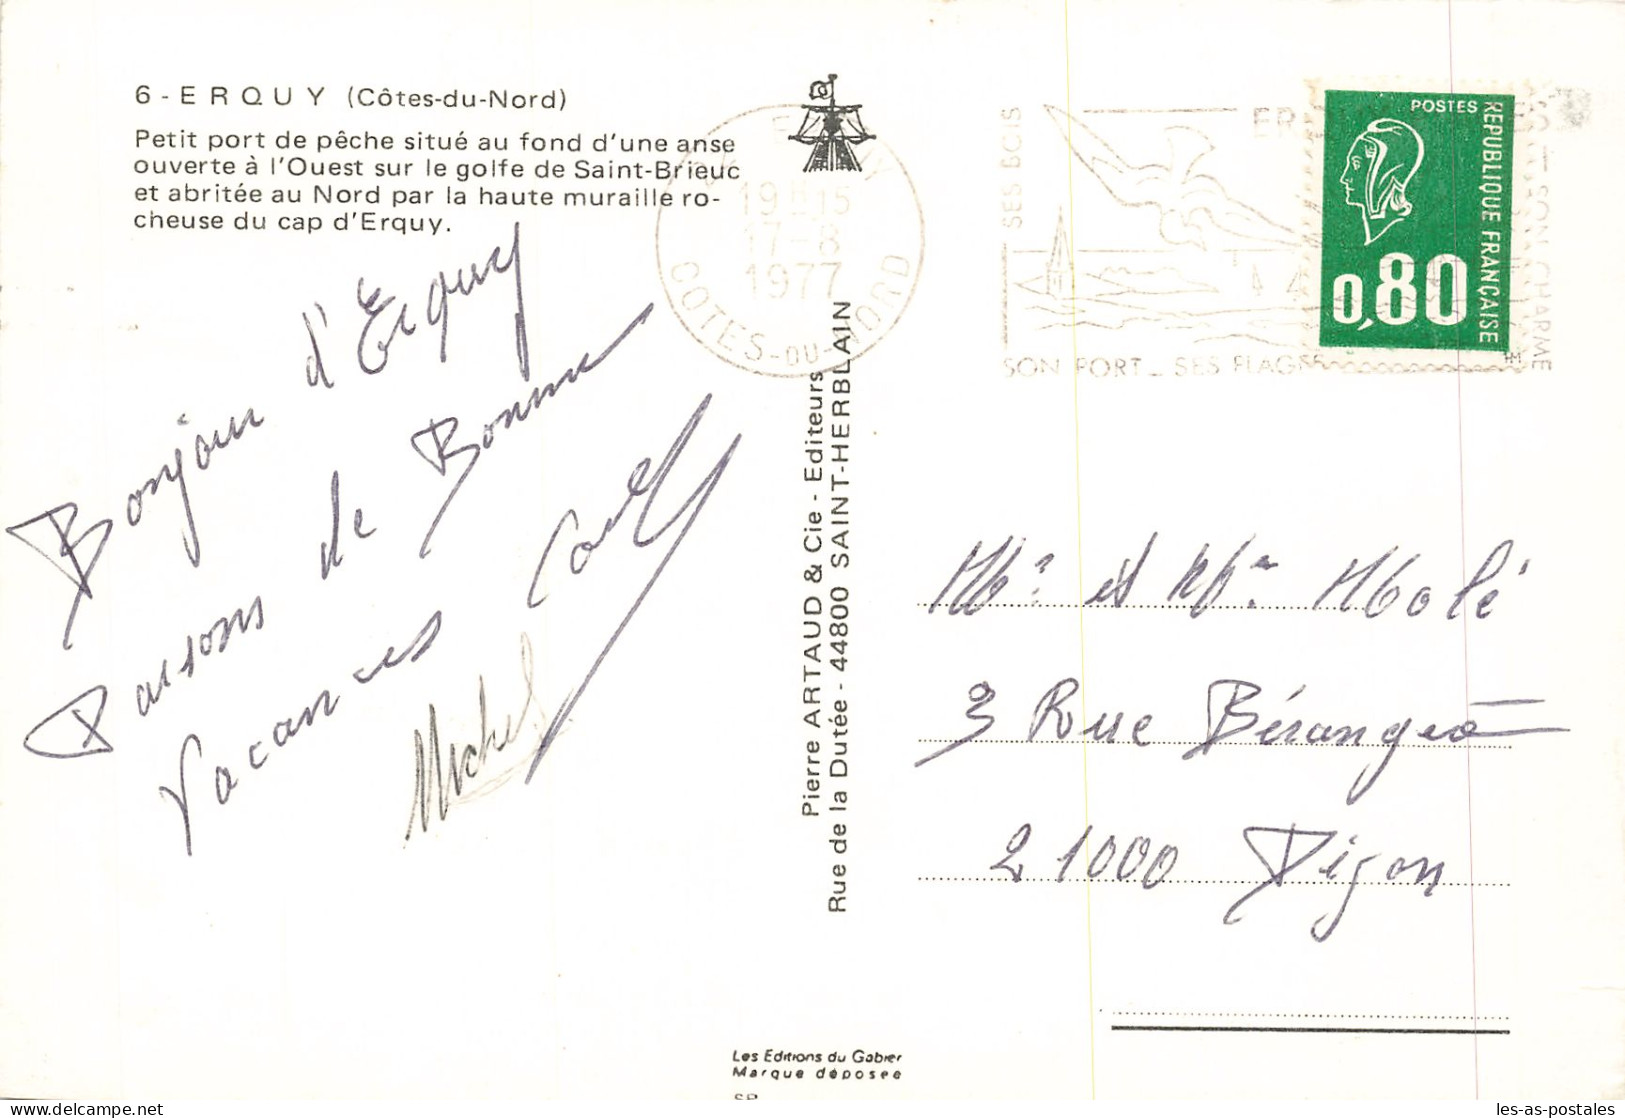 6 - ERQUY (Côtes-du-Nord)
Petit port de pêche situé au fond d'une anse
ouverte à l'Ouest sur le golfe de Saint-Brieuc
et abritée au Nord par la haute muraille ro-
cheuse du cap d'Erquy.
Bonjour d'Erquy
Passons de Bonnes
Vacances
Michel
19H15
17-8
1977
COTES-DU-NORD
SES BOIS
SON PORT - SES PLAGES
SON CHARME
POSTES
REPUBLIQUE FRANÇAISE
0,80
Pierre ARTAUD & Cie - Editeurs
Rue de la Dutée - 44800 SAINT-HERBLAIN
Mr et Mme Molé
3 Rue Béranger
21000 Dijon
Les Editions du Gabier
Marque déposée
les-as-postales